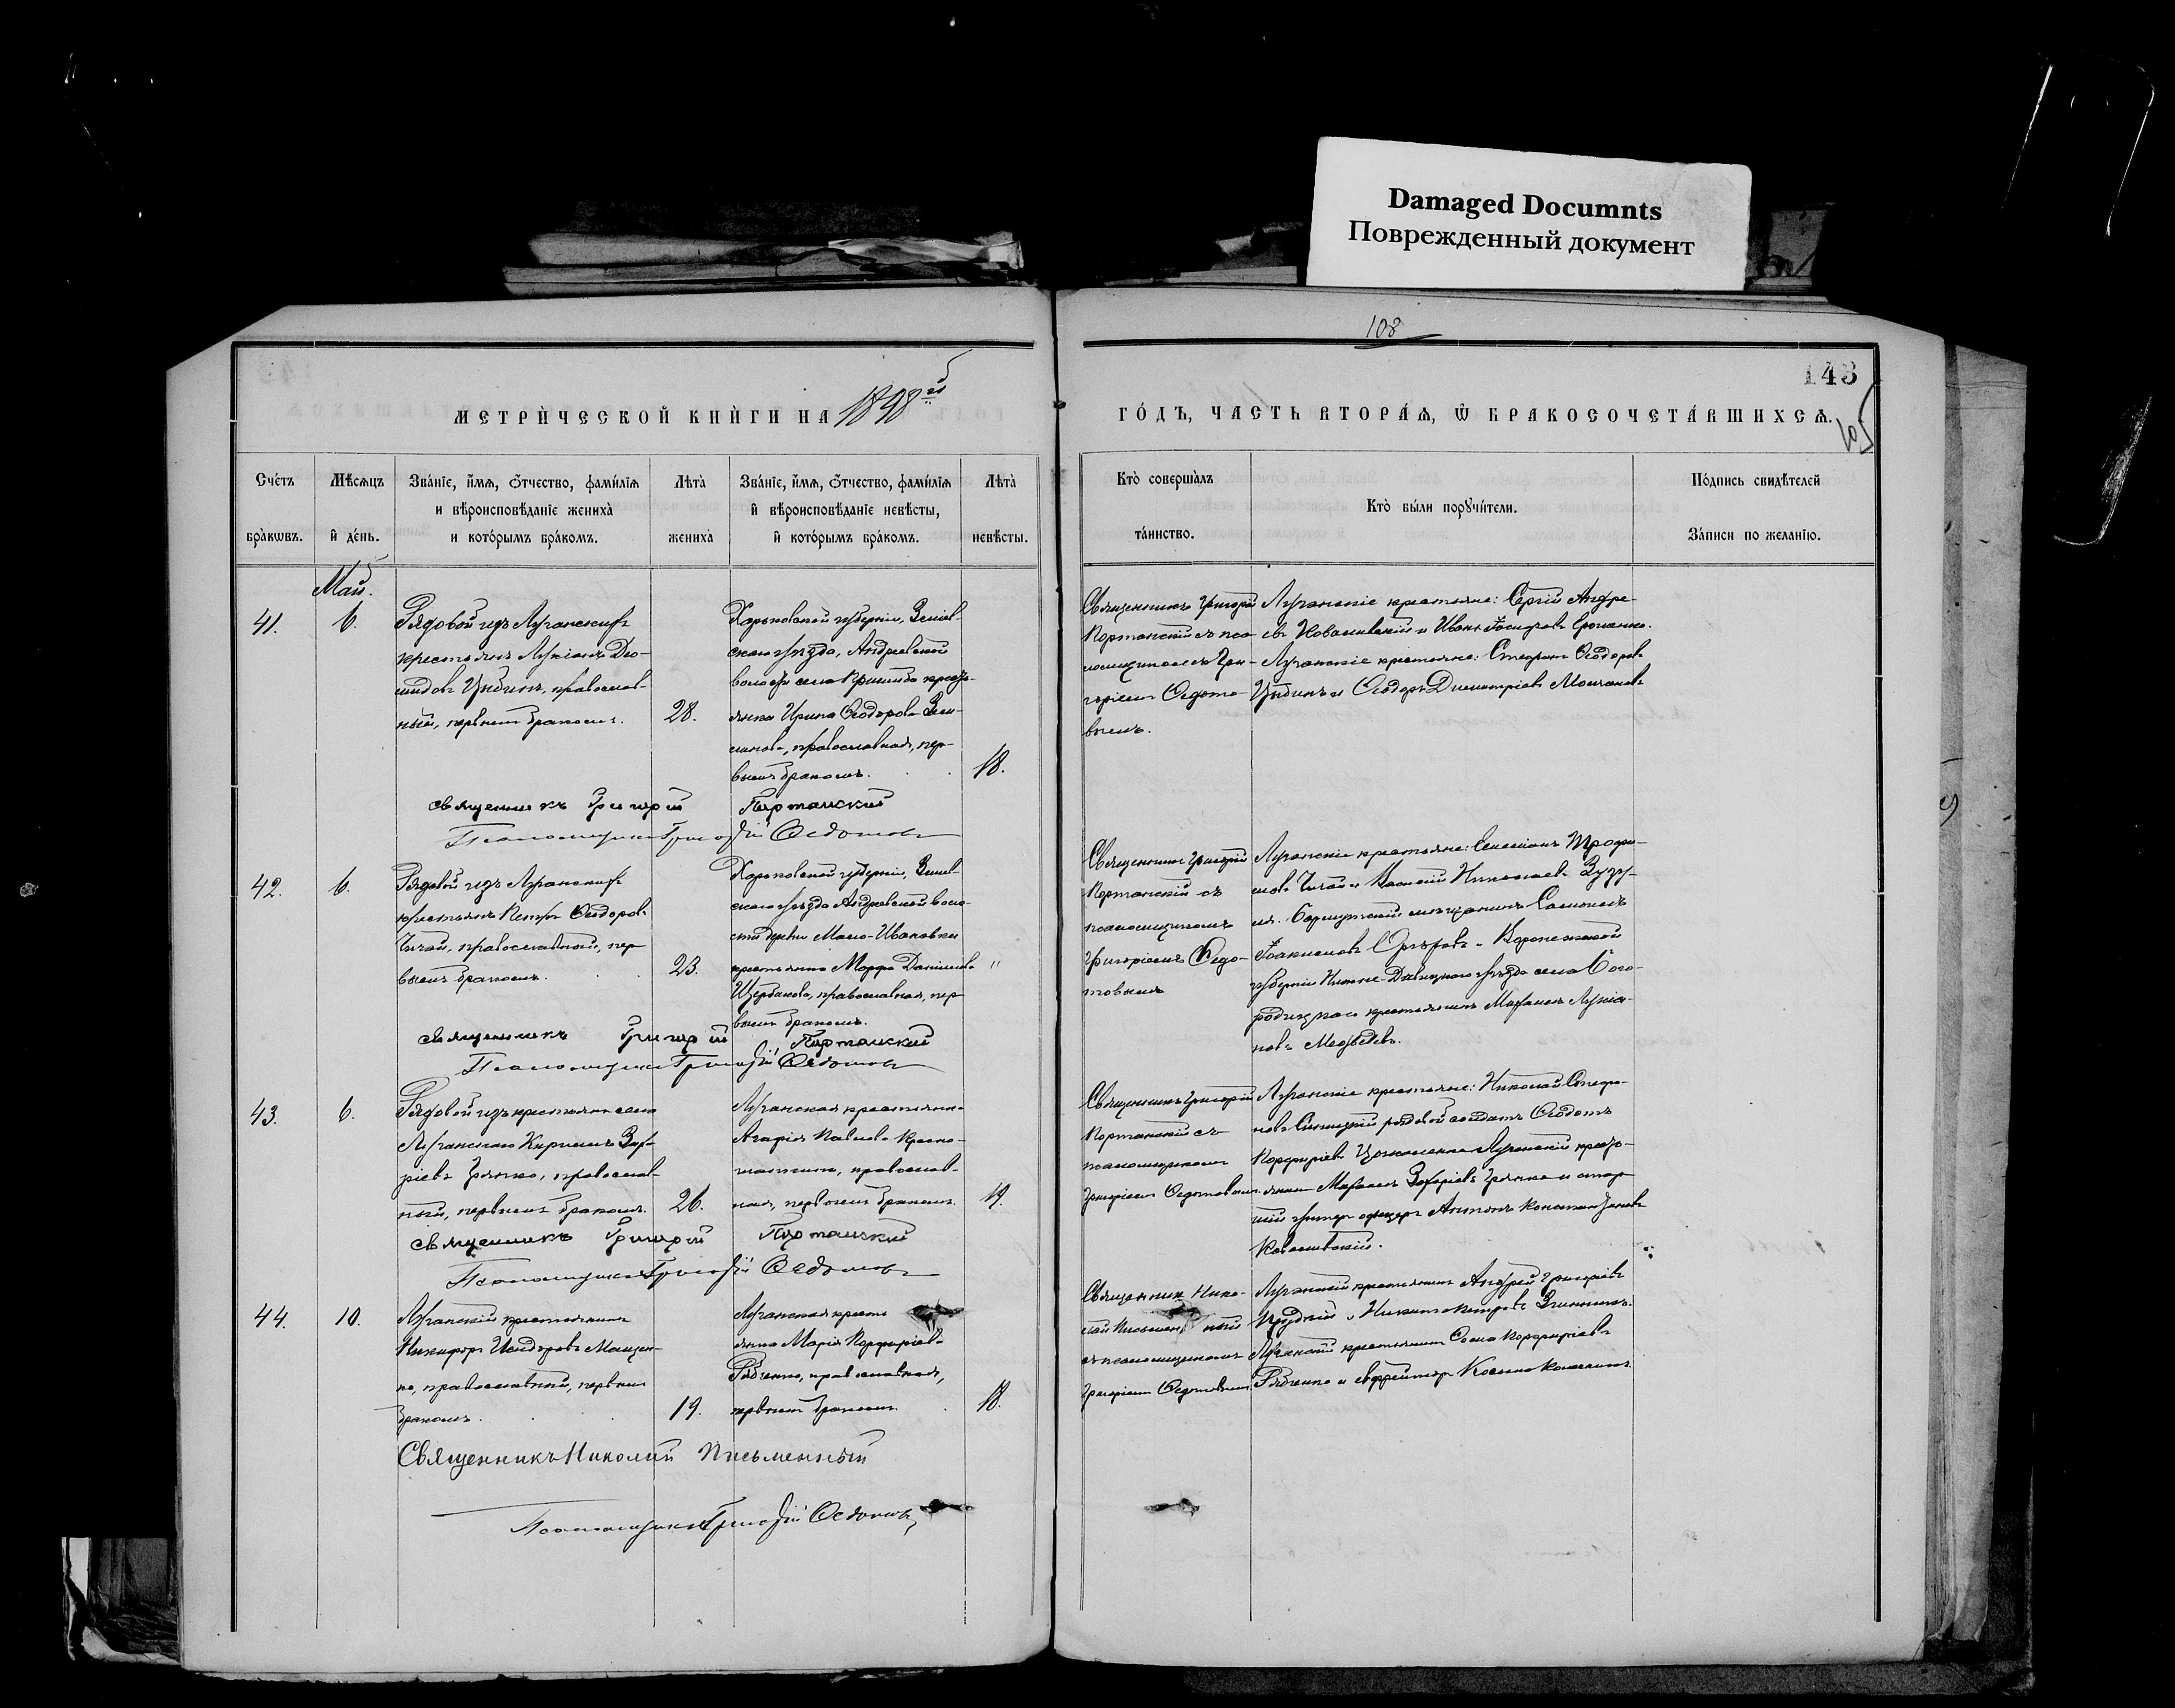 Damaged Documnts
Поврежденный документ
108
143
105
МЕТРИ́ЧЕСКОЙ КНИ́ГИ НА 1898й
ГО́ДЪ, ЧАСТЬ ВТОРА́Я, Ѡ҆ БРАКОСОЧЕТА́ВШИХСѦ.
Сче́тъ бра́кѡвъ.
Мѣ́сѧцъ и҆ де́нь.
Зва́нїе, и҆́мѧ, ѻ҆́тчество, фами́лїѧ
и вѣроисповѣ́данїе жениха̀
и кото́рымъ бра́комъ.
Лѣ́та̀ жениха̀
Зва́нїе, и҆́мѧ, ѻ҆́тчество, фами́лїѧ
и҆ вѣроисповѣ́данїе невѣ́сты,
и҆ кото́рымъ бра́комъ.
Лѣ́та̀ невѣ́сты.
Кто̀ соверша́лъ та́инство.
Кто̀ бы́ли порꙋчи́тели.
По́дпись свидѣ́телей
За́писи по жела́нїю.
Май.
41.
6.
Рядовой изъ Луганскихъ
крестьянъ Лукіанъ Део-
мидовъ Цыбинъ, православ-
ный, первымъ бракомъ.
28.
Харьковской губерніи, Зміев-
скаго уѣзда, Андреевской
волости села кресть-
янка Ирина Ѳеодорова
православная, пер-
вымъ бракомъ.
18.
Священникъ Григорій
Портанскій съ пса-
ломщикомъ Гри-
горіемъ Ѳедото-
вымъ.
Луганскіе крестьяне: Сергій Андре-
евъ и Иванъ Іосифовъ
Луганскіе крестьяне: Стефанъ Ѳеодоровъ
Цыбинъ и Ѳеодоръ Димитріевъ Молчановъ
Священникъ Григорій Портанскій
Псаломщикъ Григорій Ѳедотовъ
42.
6.
Рядовой изъ Луганскихъ
крестьянъ Петръ Ѳеодоровъ
Чигай, православный, пер
вымъ бракомъ.
23.
Харьковской губерніи, Зміев
скаго уѣзда Андреевской воло-
сти дерев. Мало-Ивановки
крестьянка Марфа Даніилова
Щербакова, православная, пер
вымъ бракомъ.
"
Священникъ Григорій
Портанскій съ
псаломщикомъ
Григоріемъ Ѳедо-
товымъ
Луганскіе крестьяне: Трофи-
мовъ Чигай и Василій Николаевъ
мѣщанинъ
Іоакимовъ и Воронежской
губерніи Нижне-Дѣвицкаго уѣзда села Бого-
родицкаго крестьянинъ Лукіа-
новъ Медвѣдевъ.
Священникъ Григорій Портанскій
Псаломщикъ Григорій Ѳедотовъ
43.
6.
Рядовой изъ крестьянъ села
Луганскаго Захе-
ріевъ Грянко, православ-
ный, первымъ бракомъ.
26.
Луганская крестьянка
Агафія Павлова
православ-
ная, первымъ бракомъ.
19.
Священникъ Григорій
Портанскій съ
псаломщикомъ
Григоріемъ Ѳедотовымъ
Луганскіе крестьяне: Николай Стефа-
новъ рядовой солдатъ
Порфиріевъ Луганскій кресть-
янинъ Грянко и стар
шій унтеръ офицеръ Антонъ Константиновъ
Священникъ Григорій Портанскій
Псаломщикъ Григорій Ѳедотовъ
44.
10.
Луганскій крестьянинъ
Никифоръ Исидоровъ Мащен-
ко, православный, первымъ
бракомъ.
19.
Луганская кресть
янка Марія Порфиріева
Рябченко, православная,
первымъ бракомъ.
18.
Священник Нико-
лай Письменный
съ псаломщикомъ
Григоріемъ Ѳедотовымъ
Луганскій крестьянинъ Андрей Григоріевъ
и Никита Петровъ
Луганскій крестьянинъ Порфиріевъ
Рябченко и ефрейторъ
Священникъ Николай Письменный
Псаломщикъ Григорій Ѳедотовъ